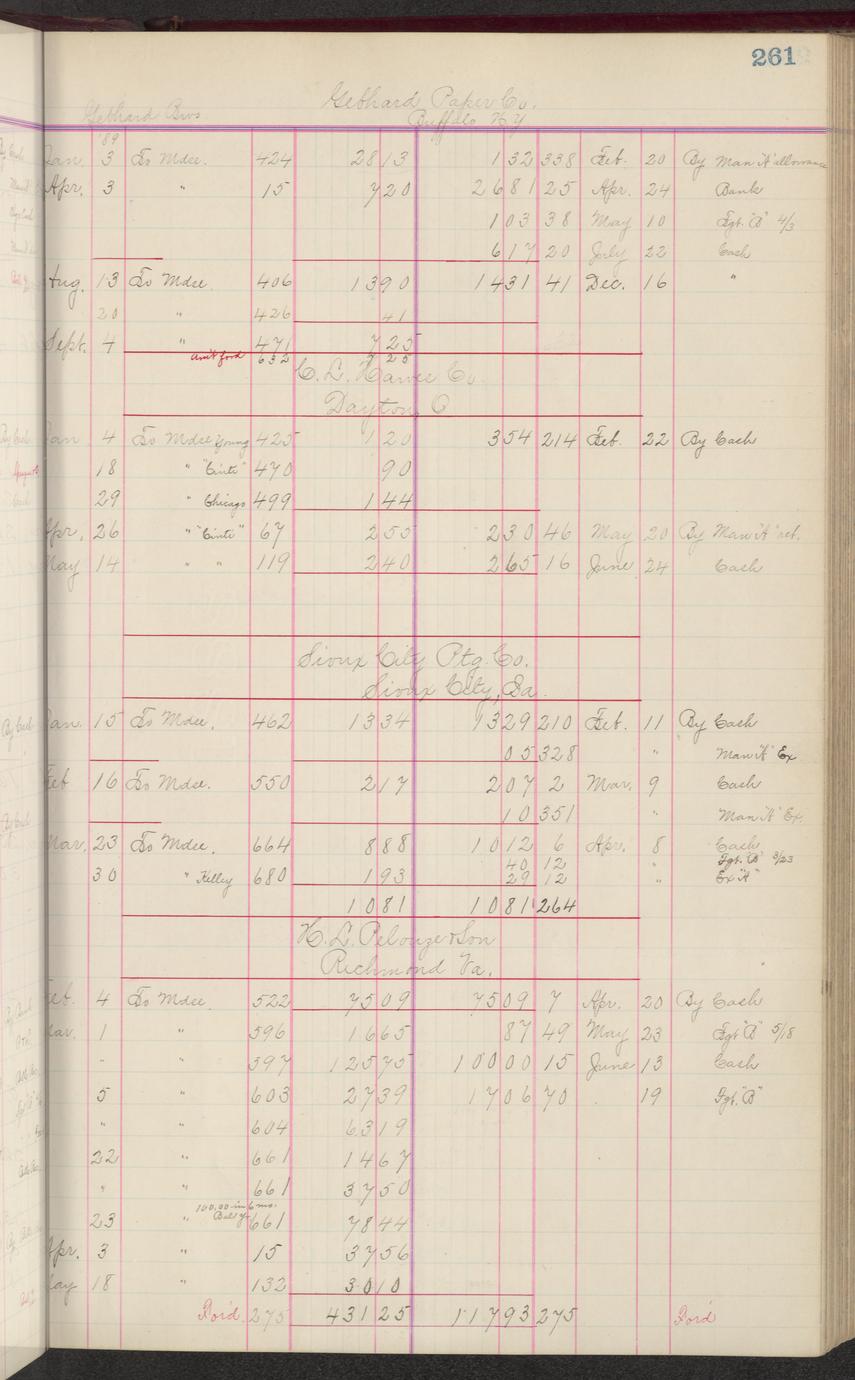 261
Gebhard Paper Co.
Gebhard Bros Buffalo N.Y.
'89
Jan. 3 To Mdse. 424 28 13 1 32 338 Feb. 20 By Man "A" allowance
Apr. 3 " 15 7 20 26 81 25 Apr. 24 Bank
1 03 38 May 10 Fgt. "B" 4/3
6 17 20 July 22 Cash
Aug. 13 To Mdse. 406 13 90 14 31 41 Dec. 16 "
20 " 426 41
Sept. 4 " 471 7 25
Am't ford 632 7 25
C. L. Hawes Co.
Dayton, O
Jan 4 To Mdse Young 425 1 20 3 54 214 Feb. 22 By Cash
18 " "Cinti" 470 90
29 " Chicago 499 1 44
Apr. 26 " "Cinti" 67 2 55 2 30 46 May 20 By Man "A" ret.
May 14 " " 119 2 40 2 65 16 June 24 Cash
Sioux City Ptg. Co.
Sioux City, Ia.
Jan. 15 To Mdse. 462 13 34 13 29 210 Feb. 11 By Cash
05 328 " Man "A" Ex
Feb 16 To Mdse. 550 2 17 2 07 2 Mar. 9 Cash
10 351 " Man "A" Ex.
Mar. 23 To Mdse. 664 8 88 10 12 6 Apr. 8 Cash
40 12 " Fgt. "B" 3/23
30 " Kelley 680 1 93 29 12 " Ex "A"
10 81 10 81 264
H. L. Pelouze & Son
Richmond Va.
Feb. 4 To Mdse. 522 75 09 75 09 7 Apr. 20 By Cash
Mar. 1 " 596 16 65 87 49 May 23 Fgt "B" 5/18
" " 597 125 75 100 00 15 June 13 Cash
5 " 603 27 39 17 06 70 19 Fgt. "B"
" " 604 63 19
22 " 661 14 67
" " 661 37 50
100.00 in 6 mo.
23 " 661 78 44
Apr. 3 " 15 37 56
May 18 " 132 30 10
For'd 275 431 25 117 93 275 For'd